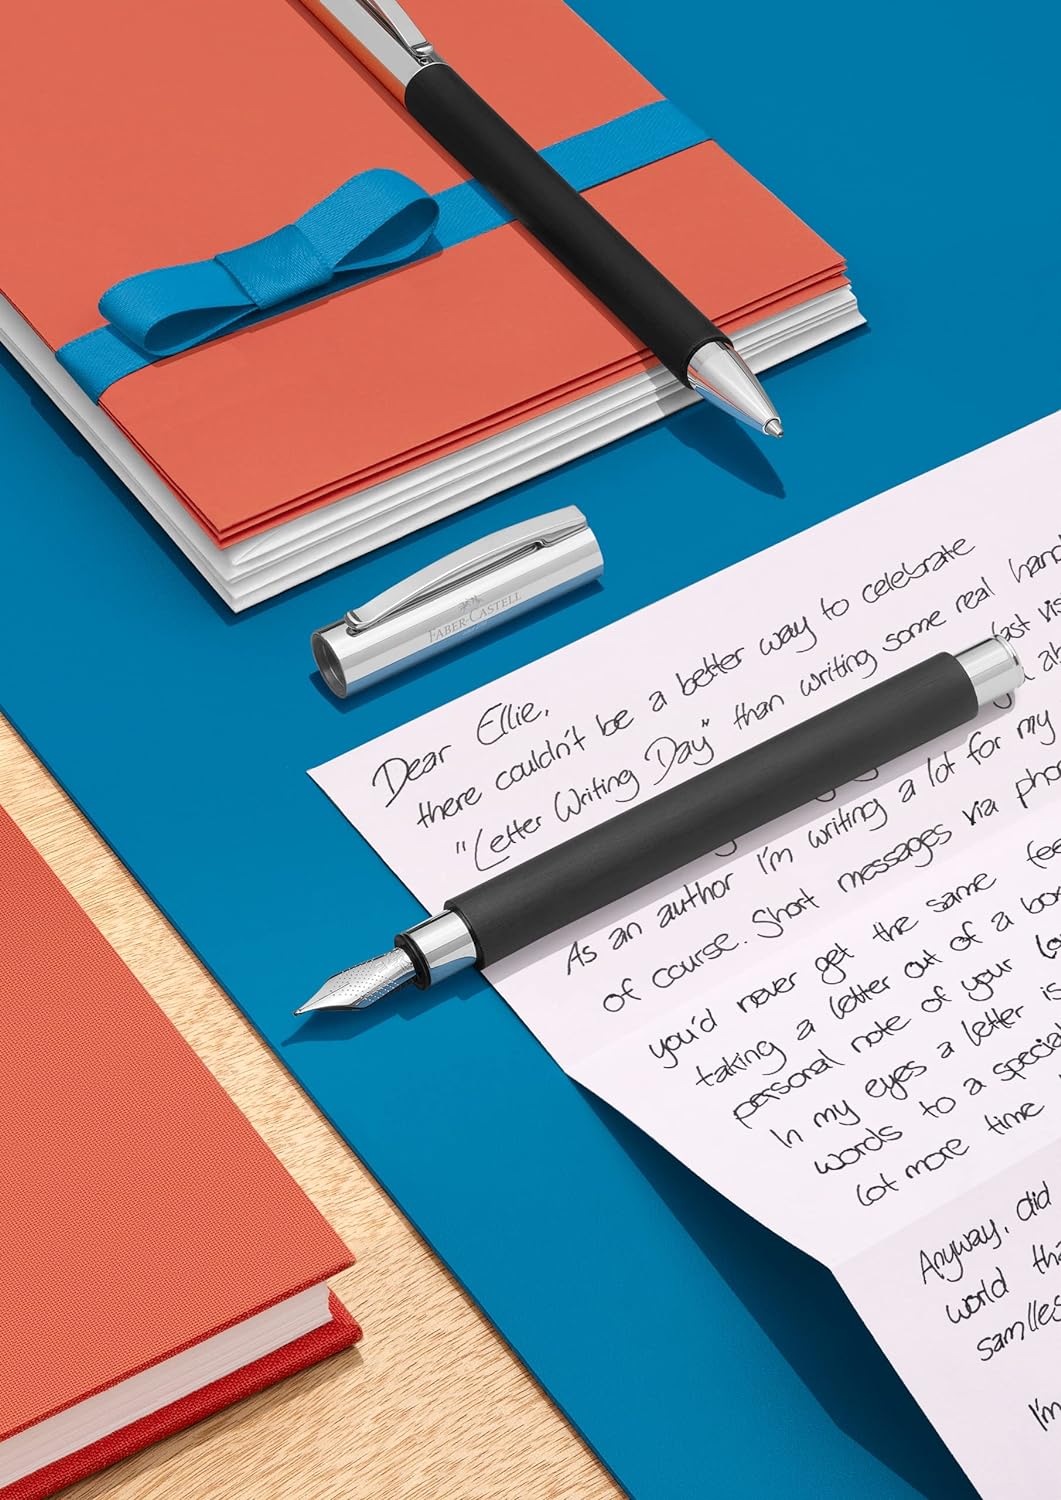 FABER-CASTELL
Dear Ellie,
there couldn't be a better way to celebrate
"Letter Writing Day" than writing some real
last
As an author I'm writing a lot for my
of course. Short messages via
you'd never get the same
taking a letter out of a
personal note of your
In my eyes a letter is
words to a
lot more time
Anyway, did
world
I'm